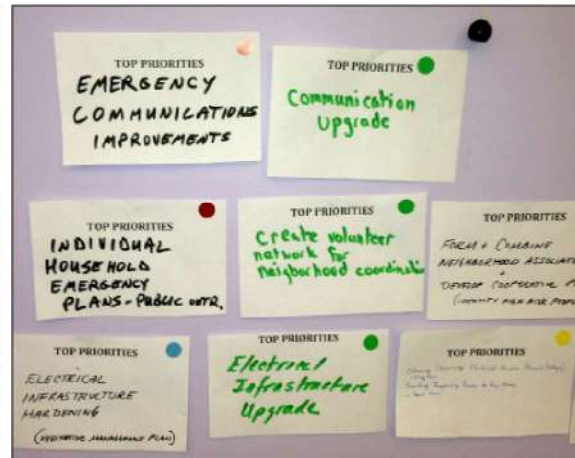 TOP PRIORITIES
EMERGENCY
COMMUNICATIONS
IMPROVEMENTS
TOP PRIORITIES
Communication
Upgrade
TOP PRIORITIES
INDIVIDUAL
HOUSEHOLD
EMERGENCY
PLANS - PUBLIC OUTR.
TOP PRIORITIES
Create volunteer
network for
neighborhood coordination
TOP PRIORITIES
FORM + COMBINE
NEIGHBORHOOD ASSOCIAT
+
DEVELOP COOPERATIVE
(IDENTIFY HIGH RISK PEOPL
TOP PRIORITIES
ELECTRICAL
INFRASTRUCTURE
HARDENING
(VEGETATIVE MANAGEMENT PLAN)
TOP PRIORITIES
Electrical
Infrastructure
Upgrade
TOP PRIORITIES